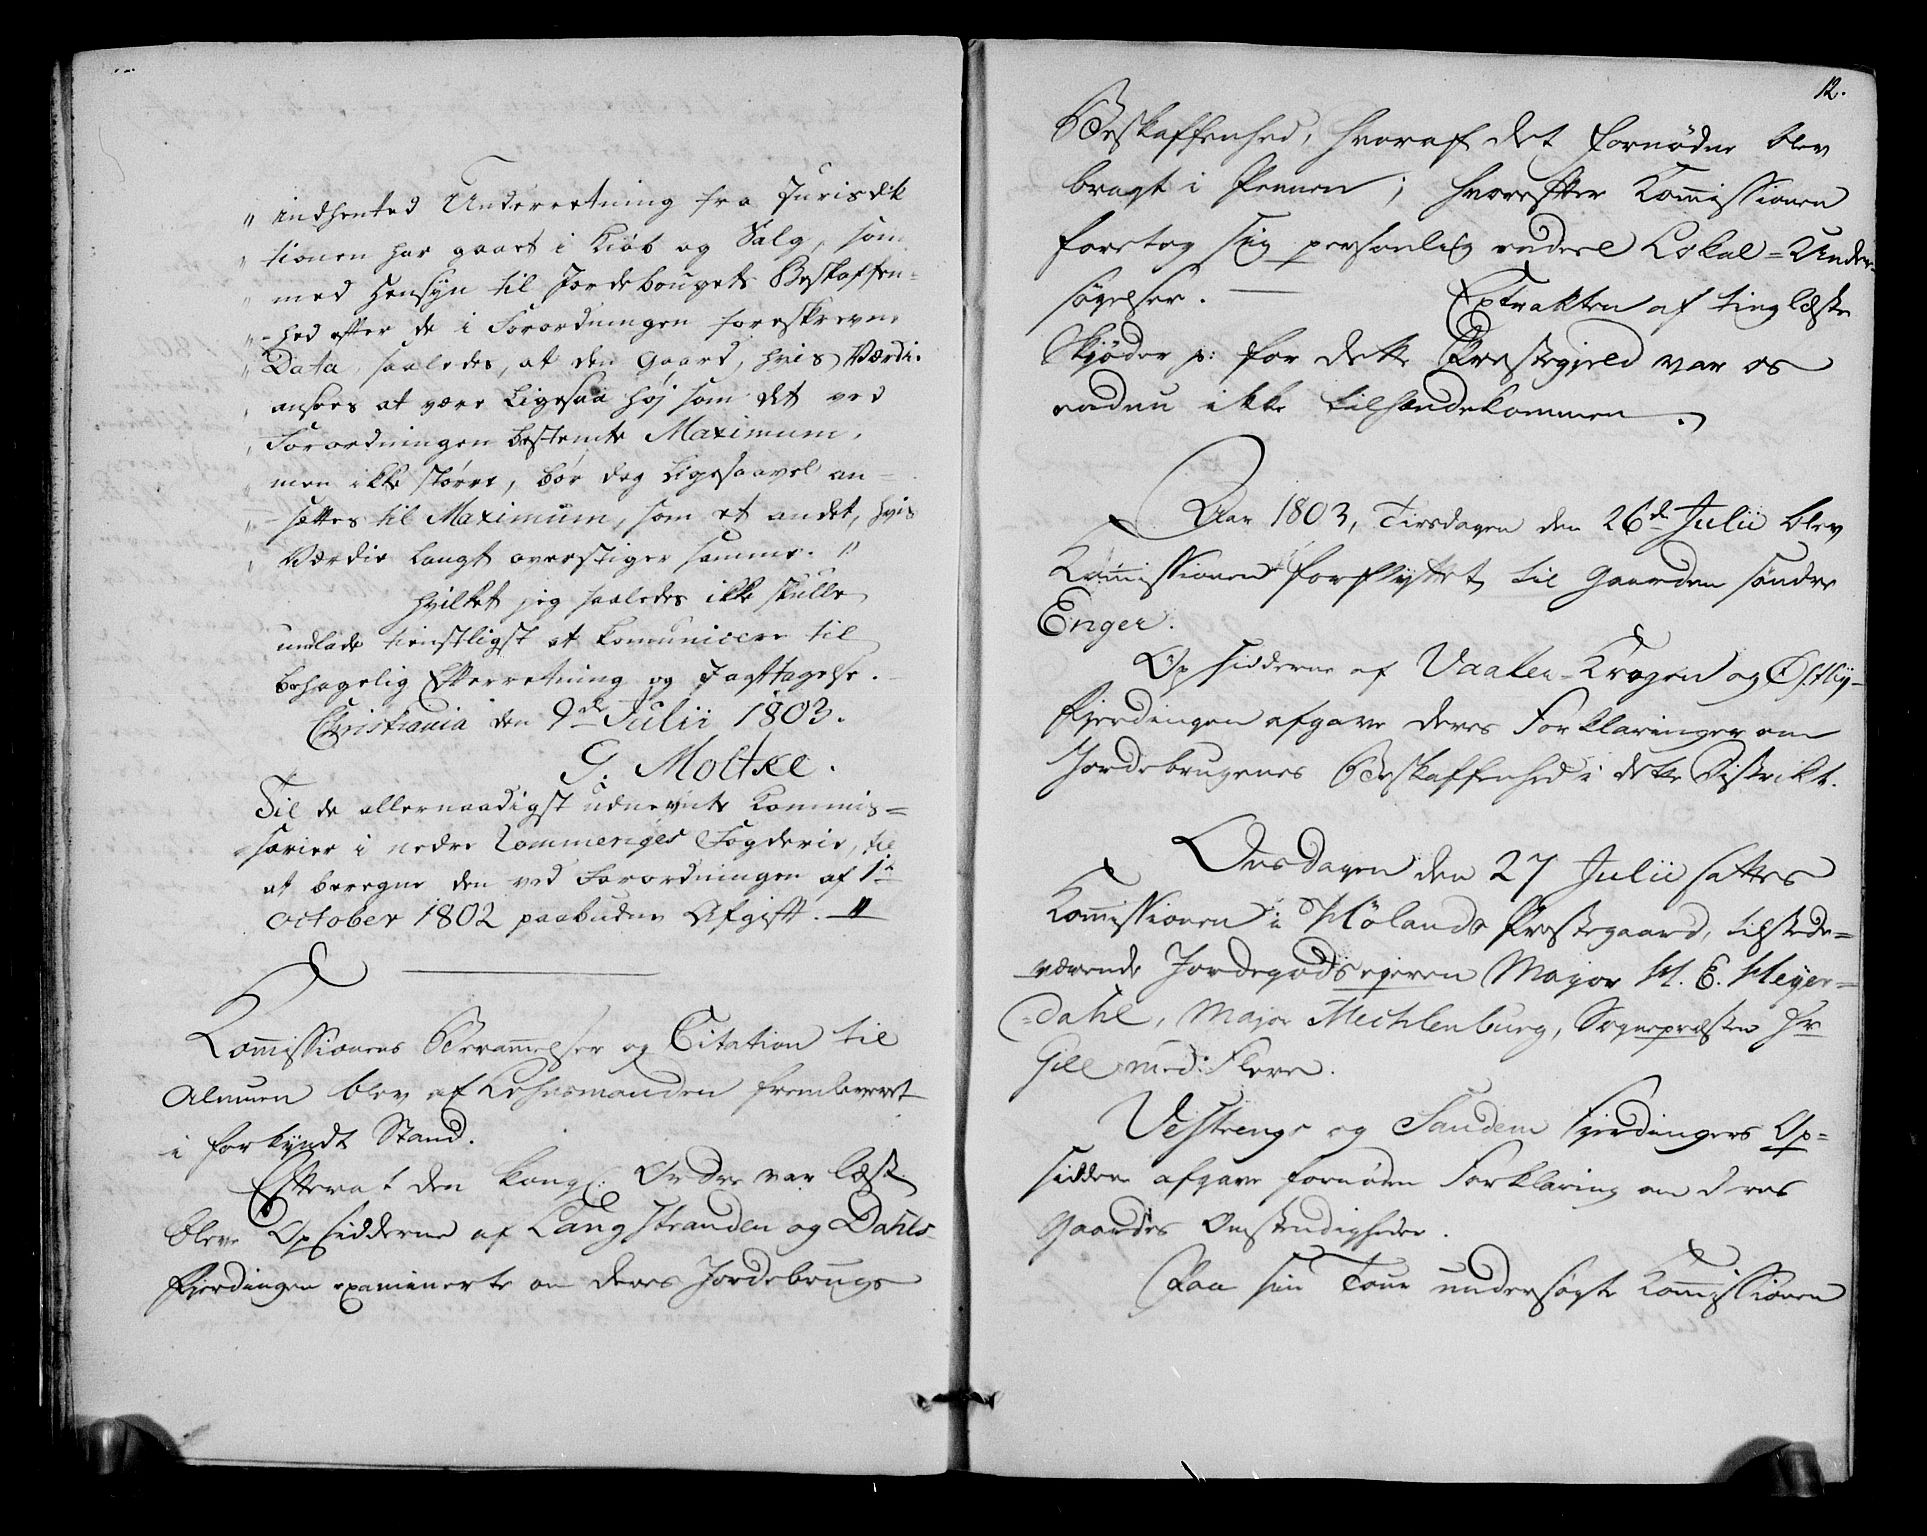 " indhented Underretning fra Jurisdik
" tionen har gaaet i Kiøb og Salg, som
" med Hensyn til Jordebrugets Beskaffen=
" hed efter de i Forordningen foreskrevne
" Data, saaledes, at den Gaard, hvis Værdi
" ansees at være ligesaa høj som det ved
" Forordningen bestemte Maximum,
" men ikke større, bør dog ligesaavel an=
" sættes til Maximum, som et andet, hvis
" Værdie langt overstiger samme. "
hvilket jeg saaledes ikke skulle
undlade tienstligst at komunicere til
behagelig Efterretning og Jagttagelse.
Christiania den 9de Julii 1803.
G. Moltke.
Til de allernaadigst udnævnte Kommis=
sarier i nedre Rommeriges Fogderie, til
at beregne den ved Forordningen af 1te
October 1802 paabudne Afgift. "
Kommissionens Berammelser og Citation til
Almuen blev af Lehnsmanden fremleveret
i forkyndt Stand.
Efterat den kongl: Ordre var læst
bleve Opsidderne af Langstranden og Dahls
Fjerdingen examinerte om deres Jordebrugs
12.
Beskaffenhed, hvoraf det fornødne blev
bragt i Pennen; hvorefter Kommissionen
foretog sig personlig endeel Lokal=Under=
søgelser. —
Extrakten af tinglæste
Skjøder p: for dette Præstegjeld var os
endnu ikke tilhændekommen.
Aar 1803, Tirsdagen den 26de Julii blev
Kommissionen forflyttet til Gaarden søndre
Enger.
Opsidderne af Vaaler-Krogen og Østby=
Fjerdingen afgave deres Forklaringer om
Jordebrugenes Beskaffenhed i dette Distrikt.
Onsdagen den 27 Julii sattes
Kommissionen i Hølands Præstegaard, tilstede=
værende Jordegodseieren Major H. E. Heyer=
=dahl, Major Mechlenburg, Sognepræsten Hr
Gill med Flere.
Vestrengs og Sandem Fjerdingers Op=
siddere afgave fornøden Forklaring om deres
Gaardes Omstændigheder.
Paa sin Tour undersøgte Kommissionen